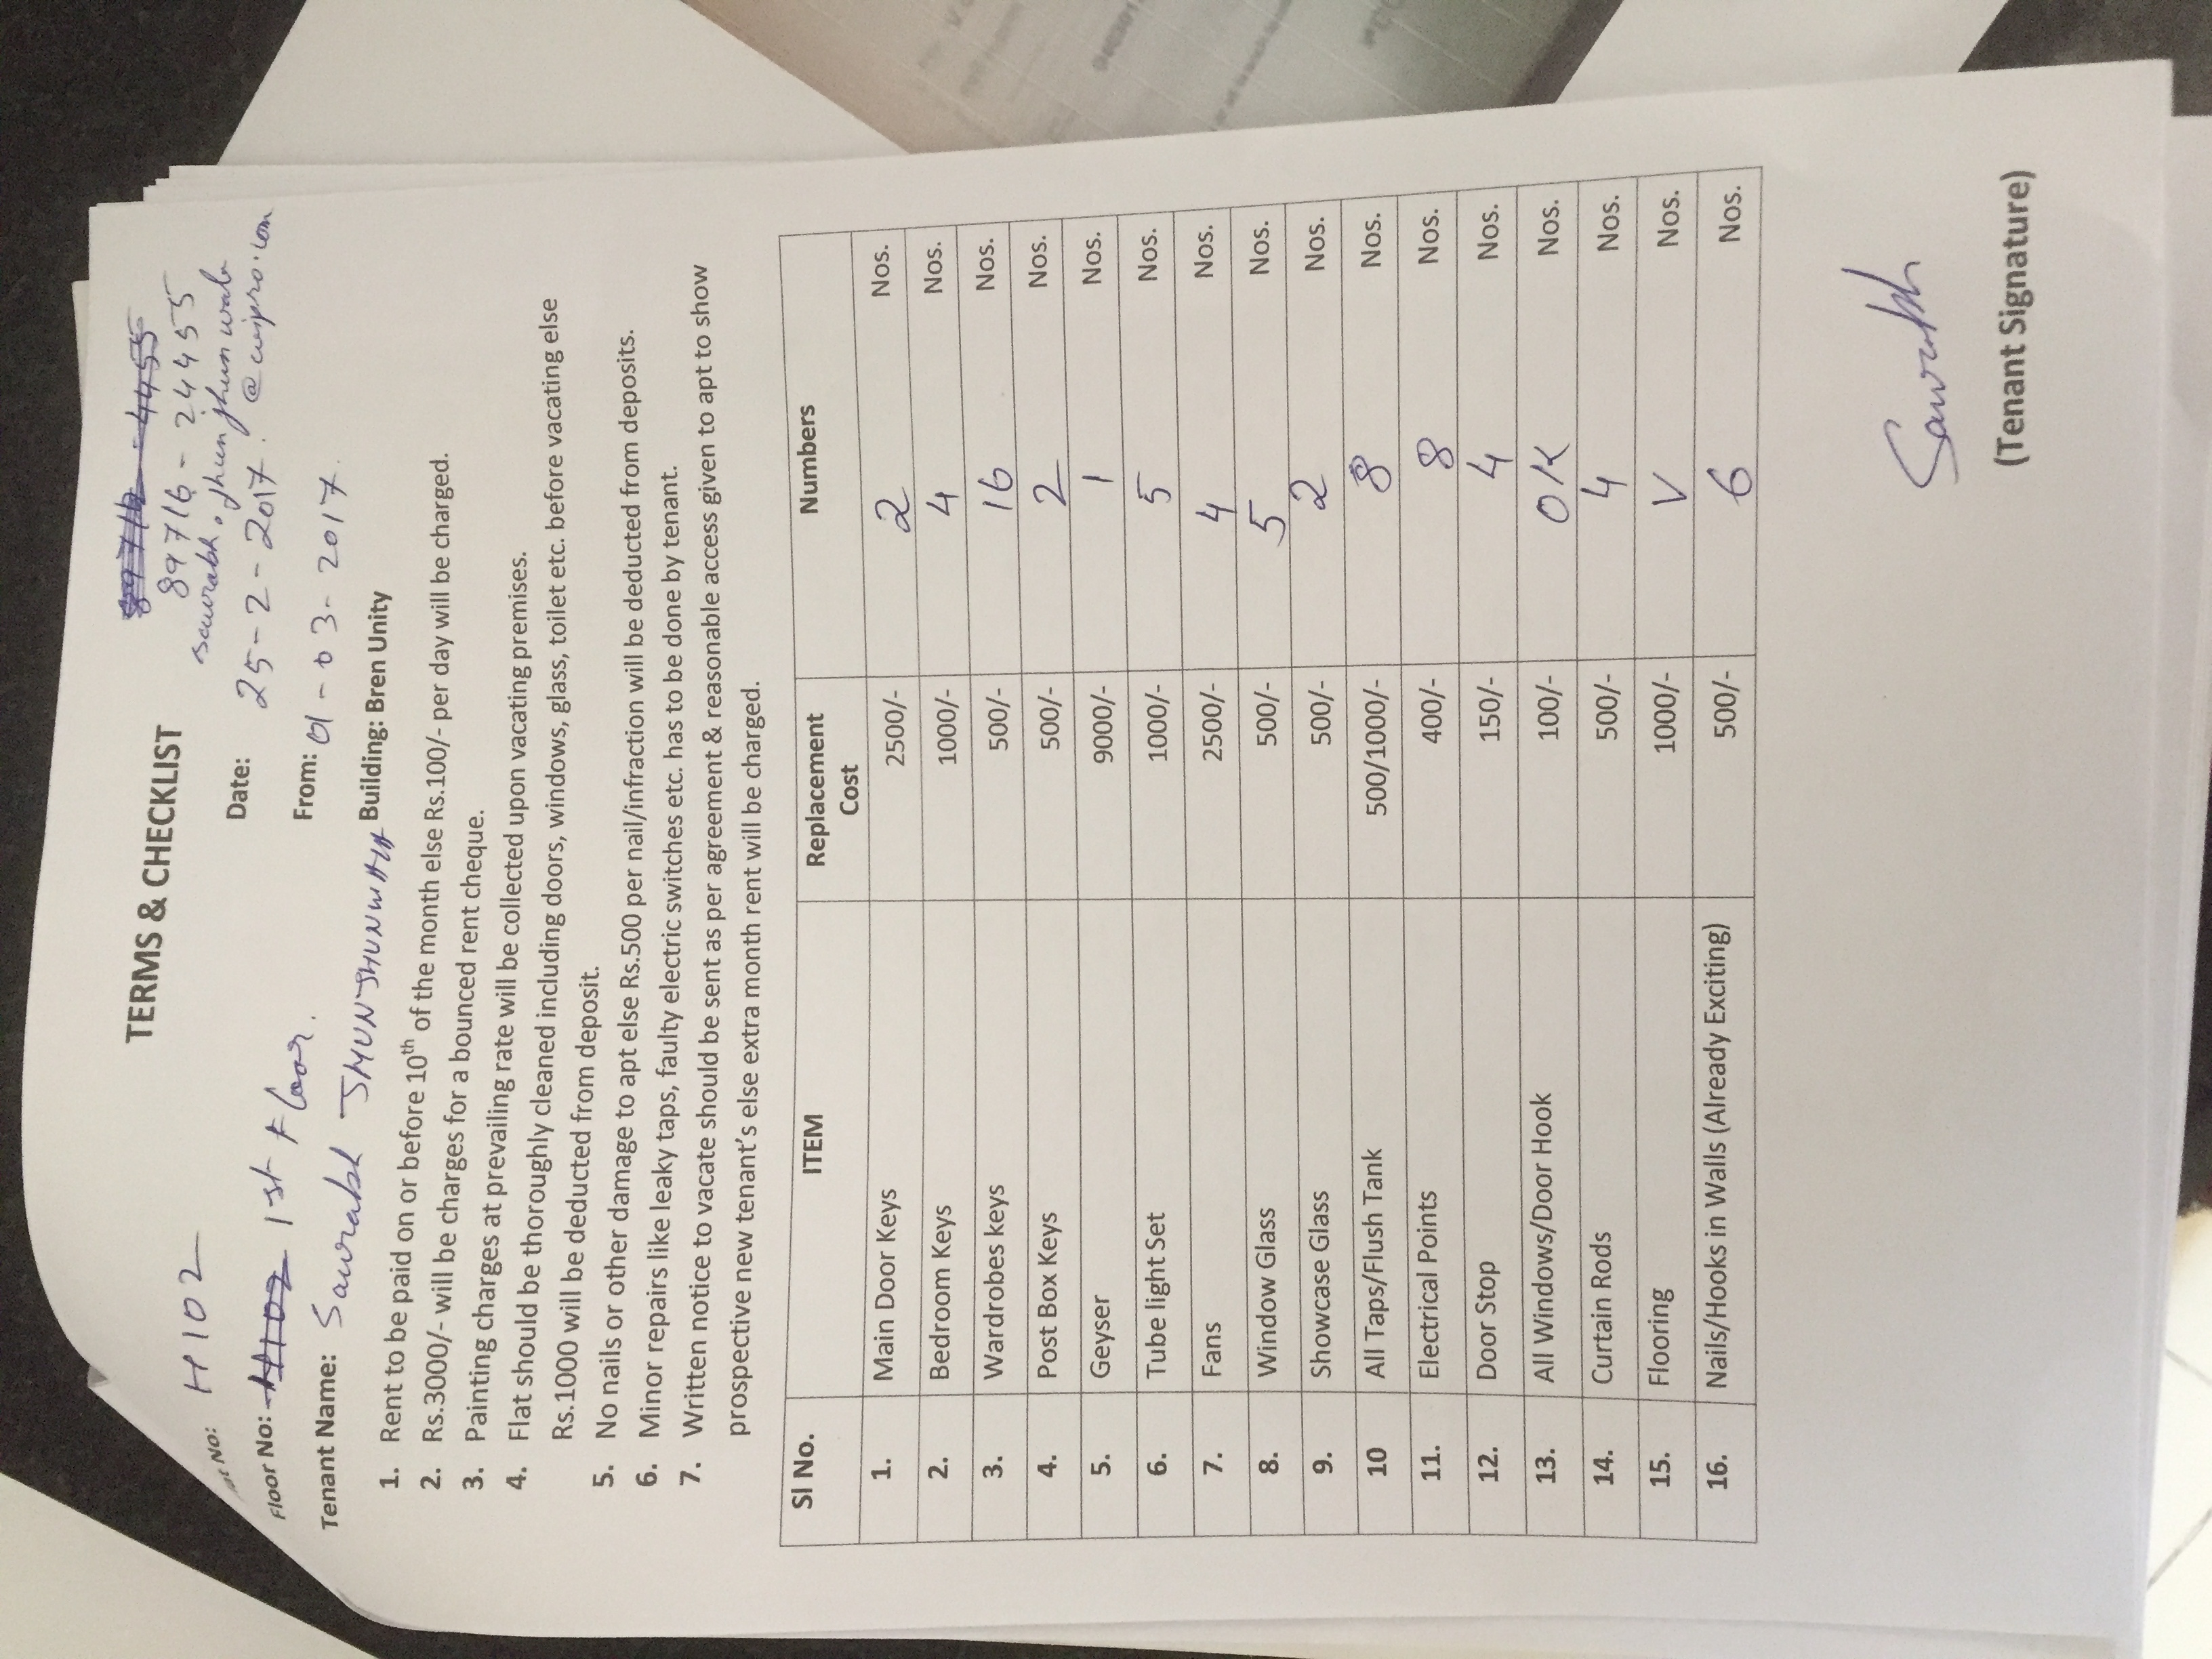 TERMS & CHECKLIST
89716 - 24455
saurabh.jhunjhunwala
@wipro.com
at No: H102
Date: 25-2-2017.
Floor No: H102 1st Floor.
From: 01-03-2017.
Tenant Name: Saurabh JHUNJHUNWALA Building: Bren Unity
1. Rent to be paid on or before 10th of the month else Rs.100/- per day will be charged.
2. Rs.3000/- will be charges for a bounced rent cheque.
3. Painting charges at prevailing rate will be collected upon vacating premises.
4. Flat should be thoroughly cleaned including doors, windows, glass, toilet etc. before vacating else
Rs.1000 will be deducted from deposit.
5. No nails or other damage to apt else Rs.500 per nail/infraction will be deducted from deposits.
6. Minor repairs like leaky taps, faulty electric switches etc. has to be done by tenant.
7. Written notice to vacate should be sent as per agreement & reasonable access given to apt to show
prospective new tenant's else extra month rent will be charged.
Sl No. ITEM Replacement Cost Numbers
1. Main Door Keys 2500/- 2 Nos.
2. Bedroom Keys 1000/- 4 Nos.
3. Wardrobes keys 500/- 16 Nos.
4. Post Box Keys 500/- 2 Nos.
5. Geyser 9000/- 1 Nos.
6. Tube light Set 1000/- 5 Nos.
7. Fans 2500/- 4 Nos.
8. Window Glass 500/- 5 Nos.
9. Showcase Glass 500/- 2 Nos.
10 All Taps/Flush Tank 500/1000/- 8 Nos.
11. Electrical Points 400/- 8 Nos.
12. Door Stop 150/- 4 Nos.
13. All Windows/Door Hook 100/- OK Nos.
14. Curtain Rods 500/- 4 Nos.
15. Flooring 1000/- V Nos.
16. Nails/Hooks in Walls (Already Exciting) 500/- 6 Nos.
Saurabh
(Tenant Signature)